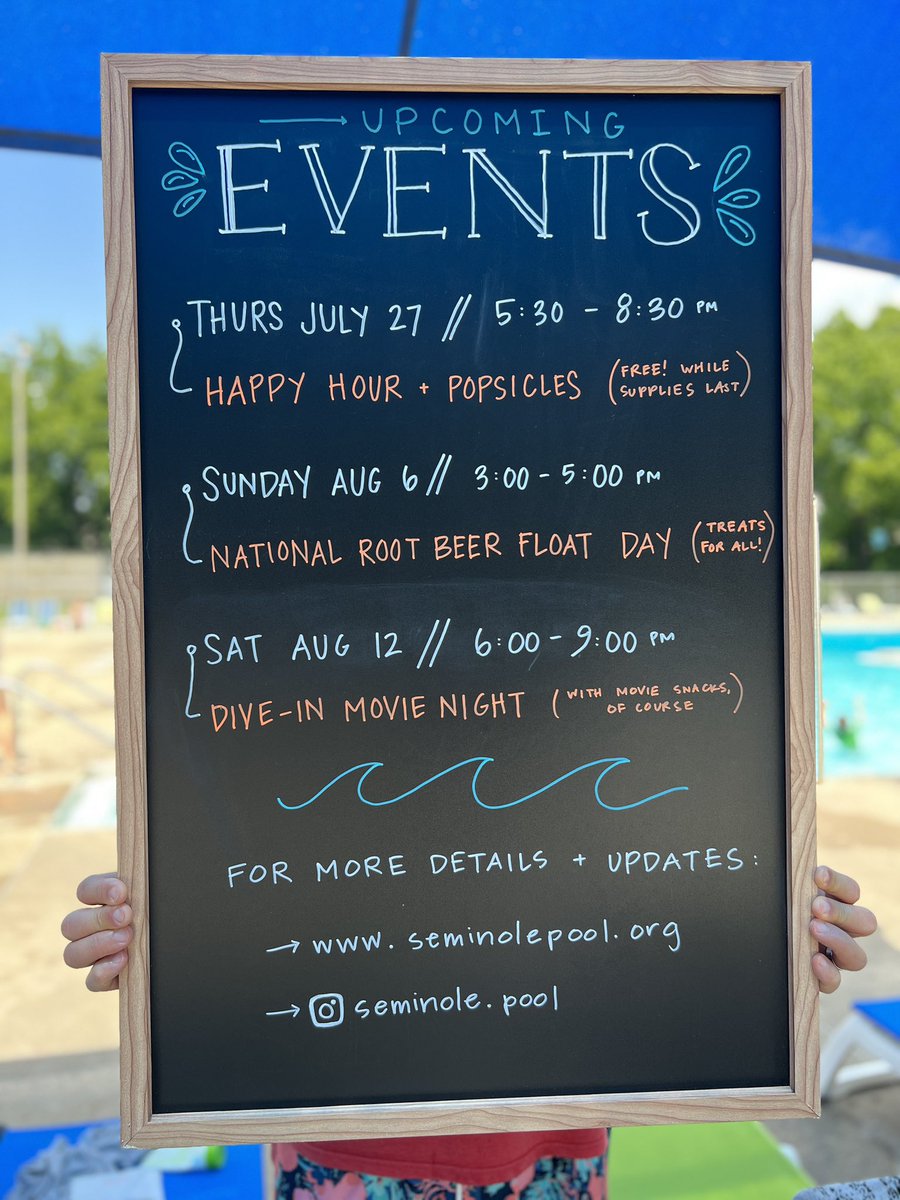 UPCOMING
EVENTS
THURS JULY 27 // 5:30 - 8:30 PM
HAPPY HOUR + POPSICLES (FREE! WHILE
SUPPLIES LAST)
SUNDAY AUG 6 // 3:00 - 5:00 PM
NATIONAL ROOT BEER FLOAT DAY (TREATS
FOR ALL!)
SAT AUG 12 // 6:00 - 9:00 PM
DIVE-IN MOVIE NIGHT (WITH MOVIE SNACKS,
OF COURSE)
FOR MORE DETAILS + UPDATES:
→ www.seminolepool.org
→ seminole.pool